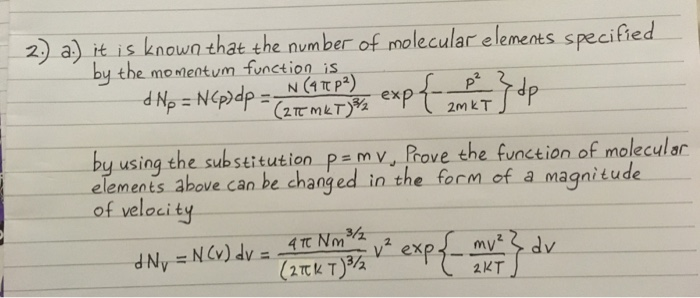 2.) a.) it is known that the number of molecular elements specified
by the momentum function is
dNp = N(p)dp = N(4πp²)/(2πmkT)^3/2 exp{-p²/2mkT}dp
by using the substitution p=mv, Prove the function of molecular
elements above can be changed in the form of a magnitude
of velocity
dNv = N(v)dv = 4πNm^3/2/(2πkT)^3/2 v² exp{-mv²/2KT}dv